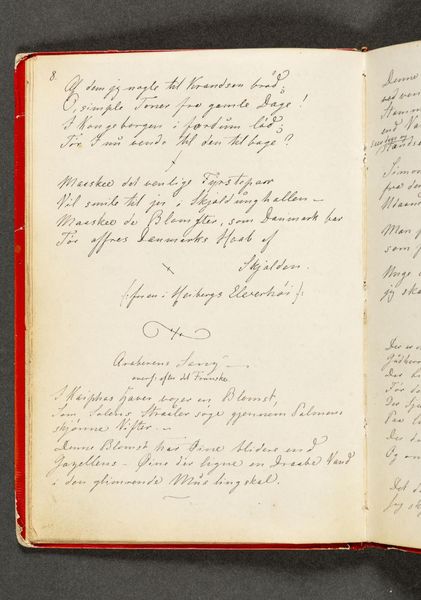 8.
Af dem jeg nogle til Krandsen brød,
O, simple Toner fra gamle Dage!
I Kongeborgen i fordum lød,
Tør I nu vende til den tilbage?
Maaskee det venlige Fyrstepar
Vil smile til jer i Skjoldunghallen –
Maaskee de Blomster, som Danmark bar
Tør offres Danmarks Haab af
Skjalden.
(: foran i Heibergs Elverhøi :)
Araberens Sang –
overs: efter det Franske
I Kaiphas Haver voxer en Blomst,
Som Solens Straaler søge gjennem Palmens
skjønne Vifter. –
Denne Blomst har Øine blidere end
Gazellens – Øine der ligne en Draabe Vand
i den glimrende Muslingskal.
Denne
som
Simon
fra den
Man
som
Unge
jeg ska
Og
Det